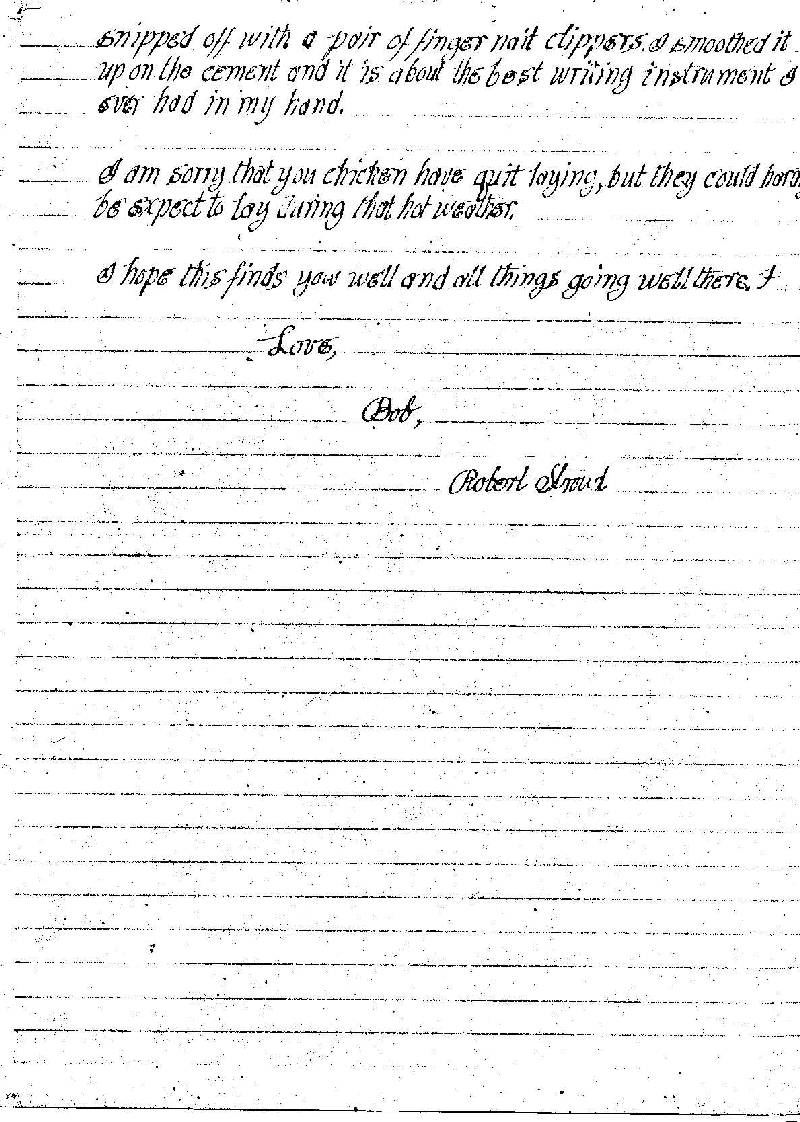 snipped off with a pair of finger nail clippers. I smoothed it
up on the cement and it is about the best writing instrument I
ever had in my hand.
I am sorry that you chicken have quit laying, but they could
be expect to lay during that hot weather.
I hope this finds you well and all things going well there. I
Love,
Bob,
Robert Stroud